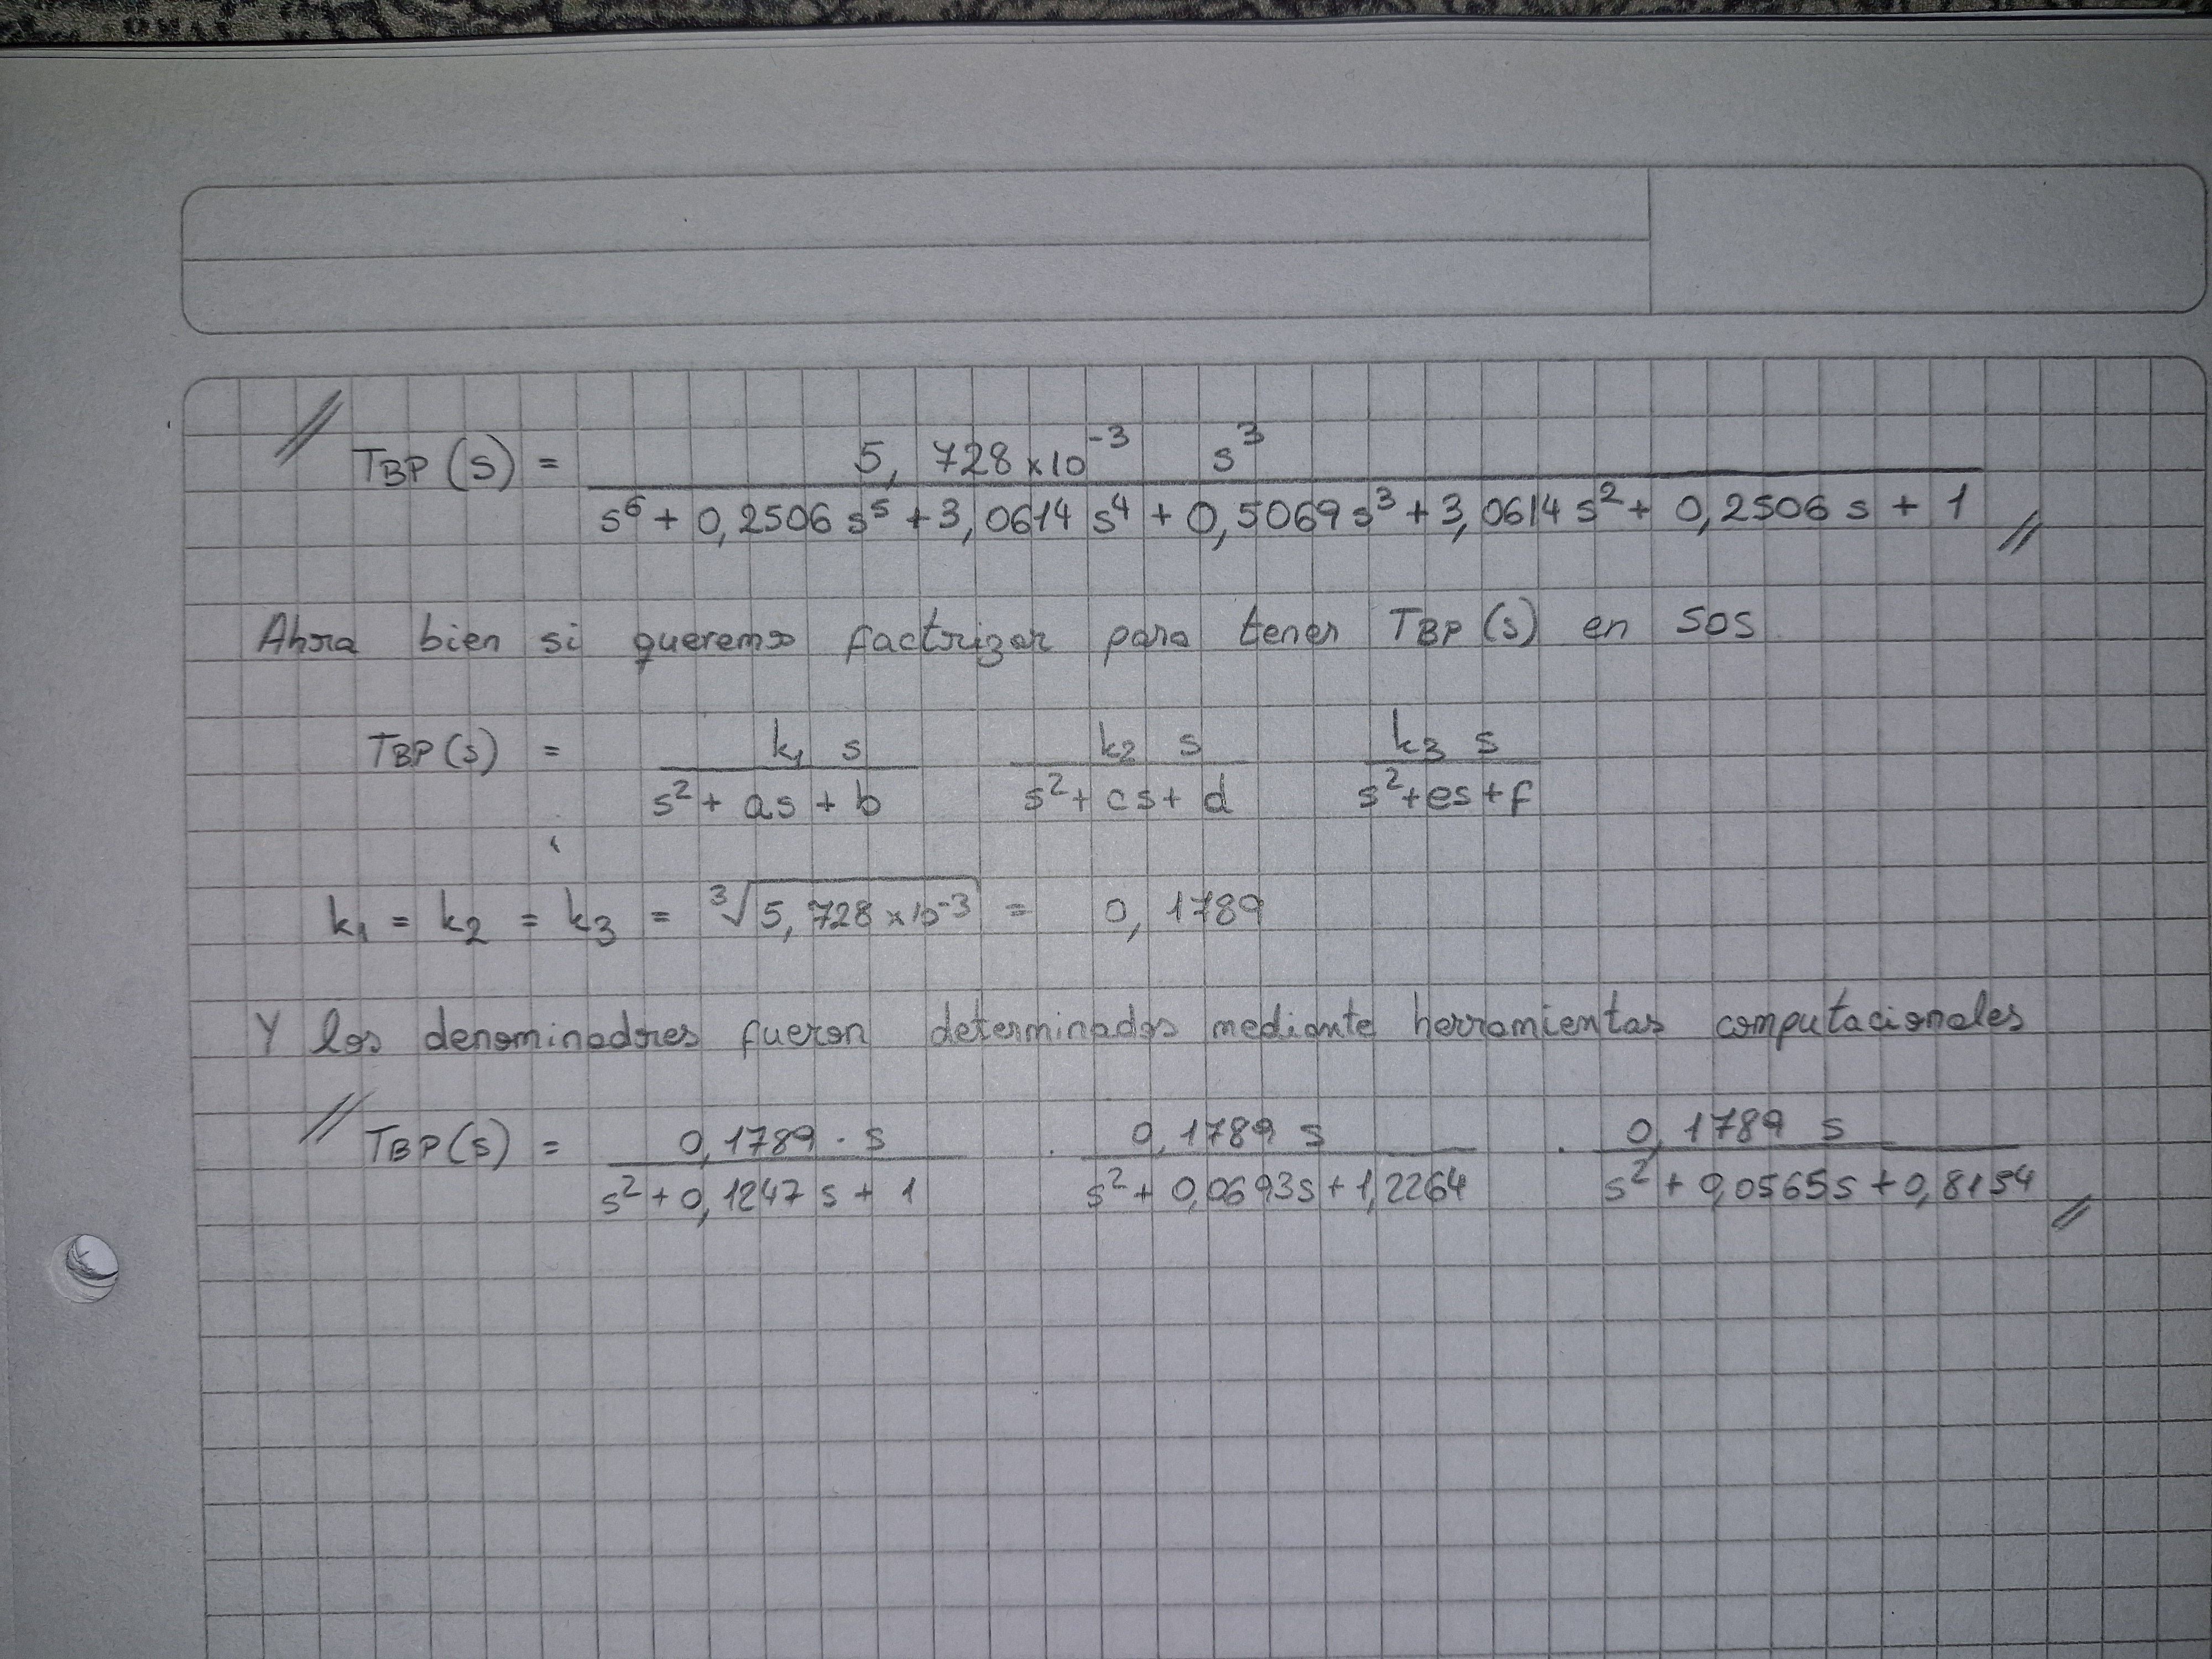 // T_BP(s) = 5,728×10^-3 s^3 / (s^6 + 0,2506 s^5 + 3,0614 s^4 + 0,5069 s^3 + 3,0614 s^2 + 0,2506 s + 1) //
Ahora bien si queremos factorizar para tener T_BP(s) en SOS
T_BP(s) = k_1 s / (s^2 + as + b) k_2 s / (s^2 + cs + d) k_3 s / (s^2 + es + f)
k_1 = k_2 = k_3 = ∛(5,728×10^-3) = 0,1789
Y los denominadores fueron determinados mediante herramientas computacionales
// T_BP(s) = 0,1789 · s / (s^2 + 0,1247 s + 1) · 0,1789 s / (s^2 + 0,0693s + 1,2264) · 0,1789 s / (s^2 + 0,0565s + 0,8154) //